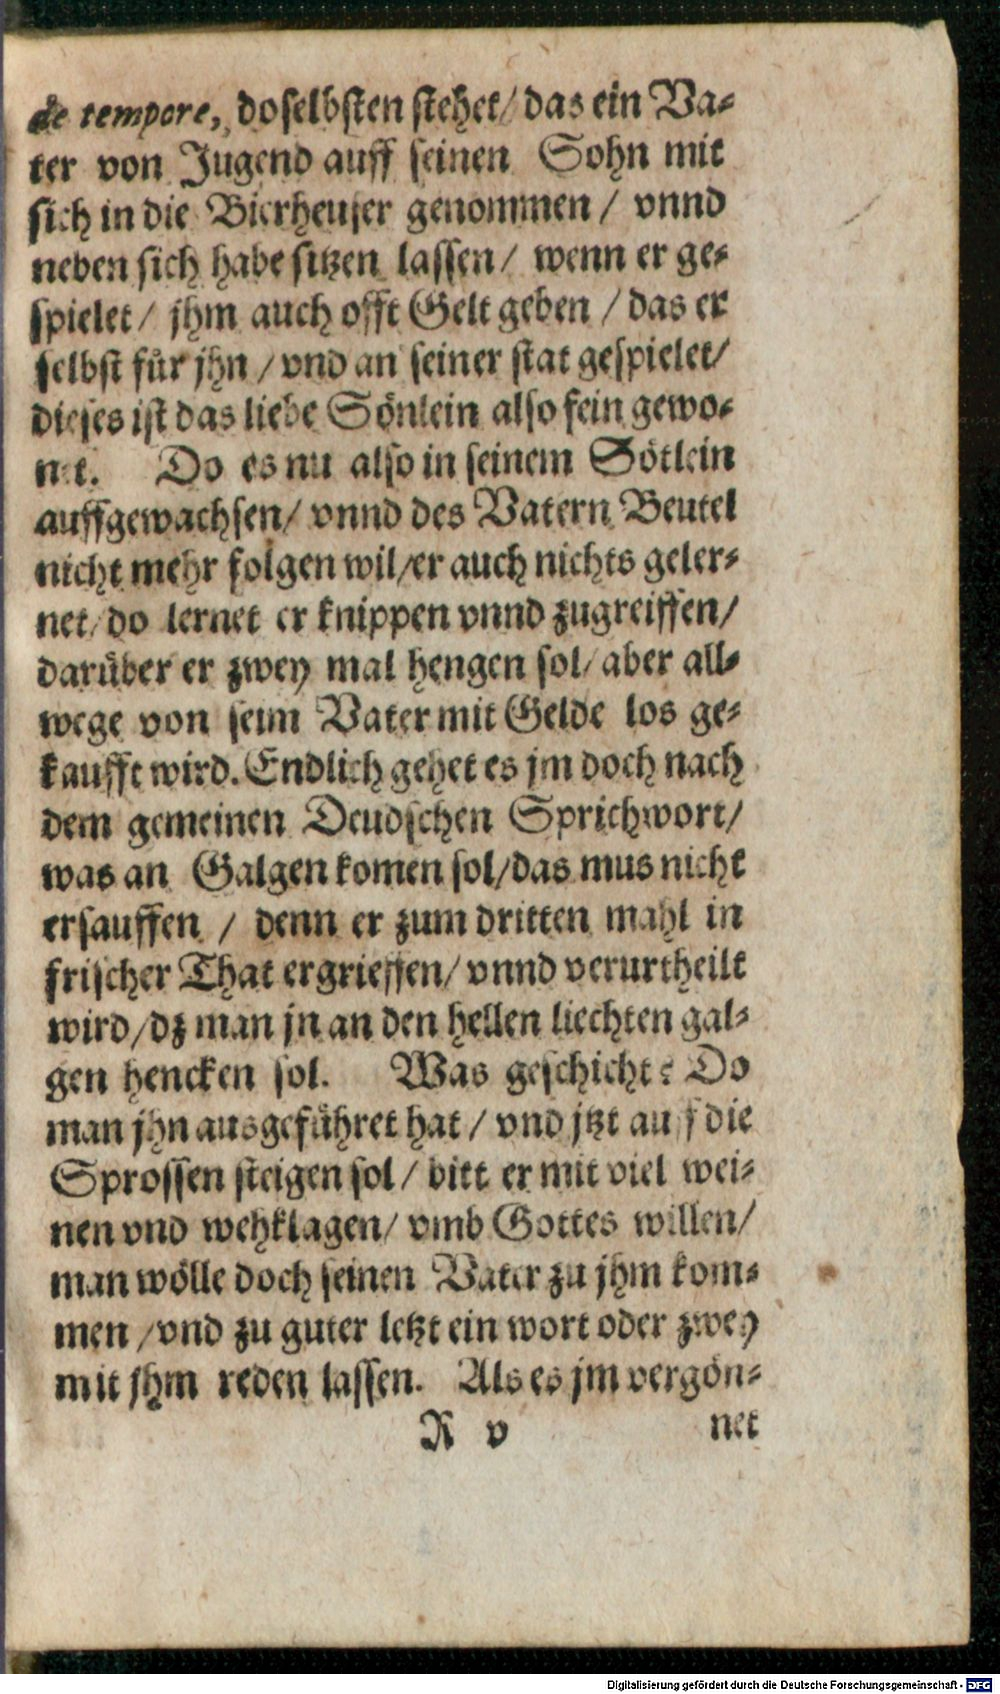 de tempore, doselbsten stehet/ das ein Va-
ter von Jugend auff seinen Sohn mit
sich in die Bierheuser genommen / vnnd
neben sich habe sitzen lassen/ wenn er ge-
spielet / jhm auch offt Gelt geben / das er
selbst für jhn / vnd an seiner stat gespielet/
dieses ist das liebe Sönlein also fein gewo-
net. Do es nu also in seinem Sötlein
auffgewachsen/ vnnd des Vatern Beutel
nicht mehr folgen wil/er auch nichts geler-
net/ do lernet er knippen vnnd zugreiffen/
darüber er zwey mal hengen sol/ aber all-
wege von seim Vater mit Gelde los ge-
kaufft wird. Endlich gehet es jm doch nach
dem gemeinen Deudschen Sprichwort/
was an Galgen komen sol/das mus nicht
ersauffen / denn er zum dritten mahl in
frischer That ergrieffen/ vnnd verurtheilt
wird/dz man jn an den hellen liechten gal-
gen hencken sol. Was geschicht? Do
man jhn ausgeführet hat / vnd jtzt auff die
Sprossen steigen sol / bitt er mit viel wei-
nen vnd wehklagen/ vmb Gottes willen/
man wölle doch seinen Vater zu jhm kom-
men /vnd zu guter letzt ein wort oder zwey
mit jhm reden lassen. Als es jm vergön-
R v net
Digitalisierung gefördert durch die Deutsche Forschungsgemeinschaft - DFG